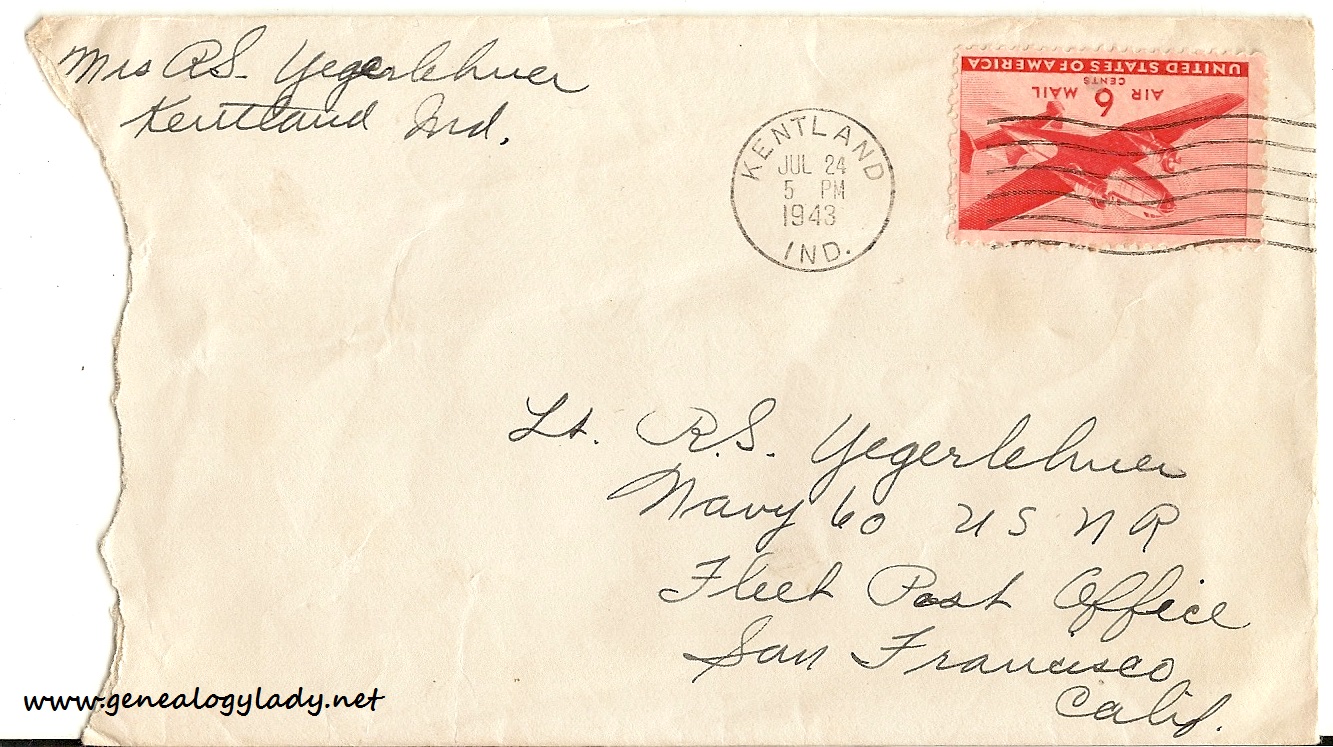 Mrs R.S. Yegerlehner
Kentland Ind.
KENTLAND
JUL 24
5 PM
1943
IND.
UNITED STATES OF AMERICA
CENTS
AIR 6 MAIL
Lt. R.S. Yegerlehner
Navy 60 U S N R
Fleet Post Office
San Francisco
Calif.
www.genealogylady.net